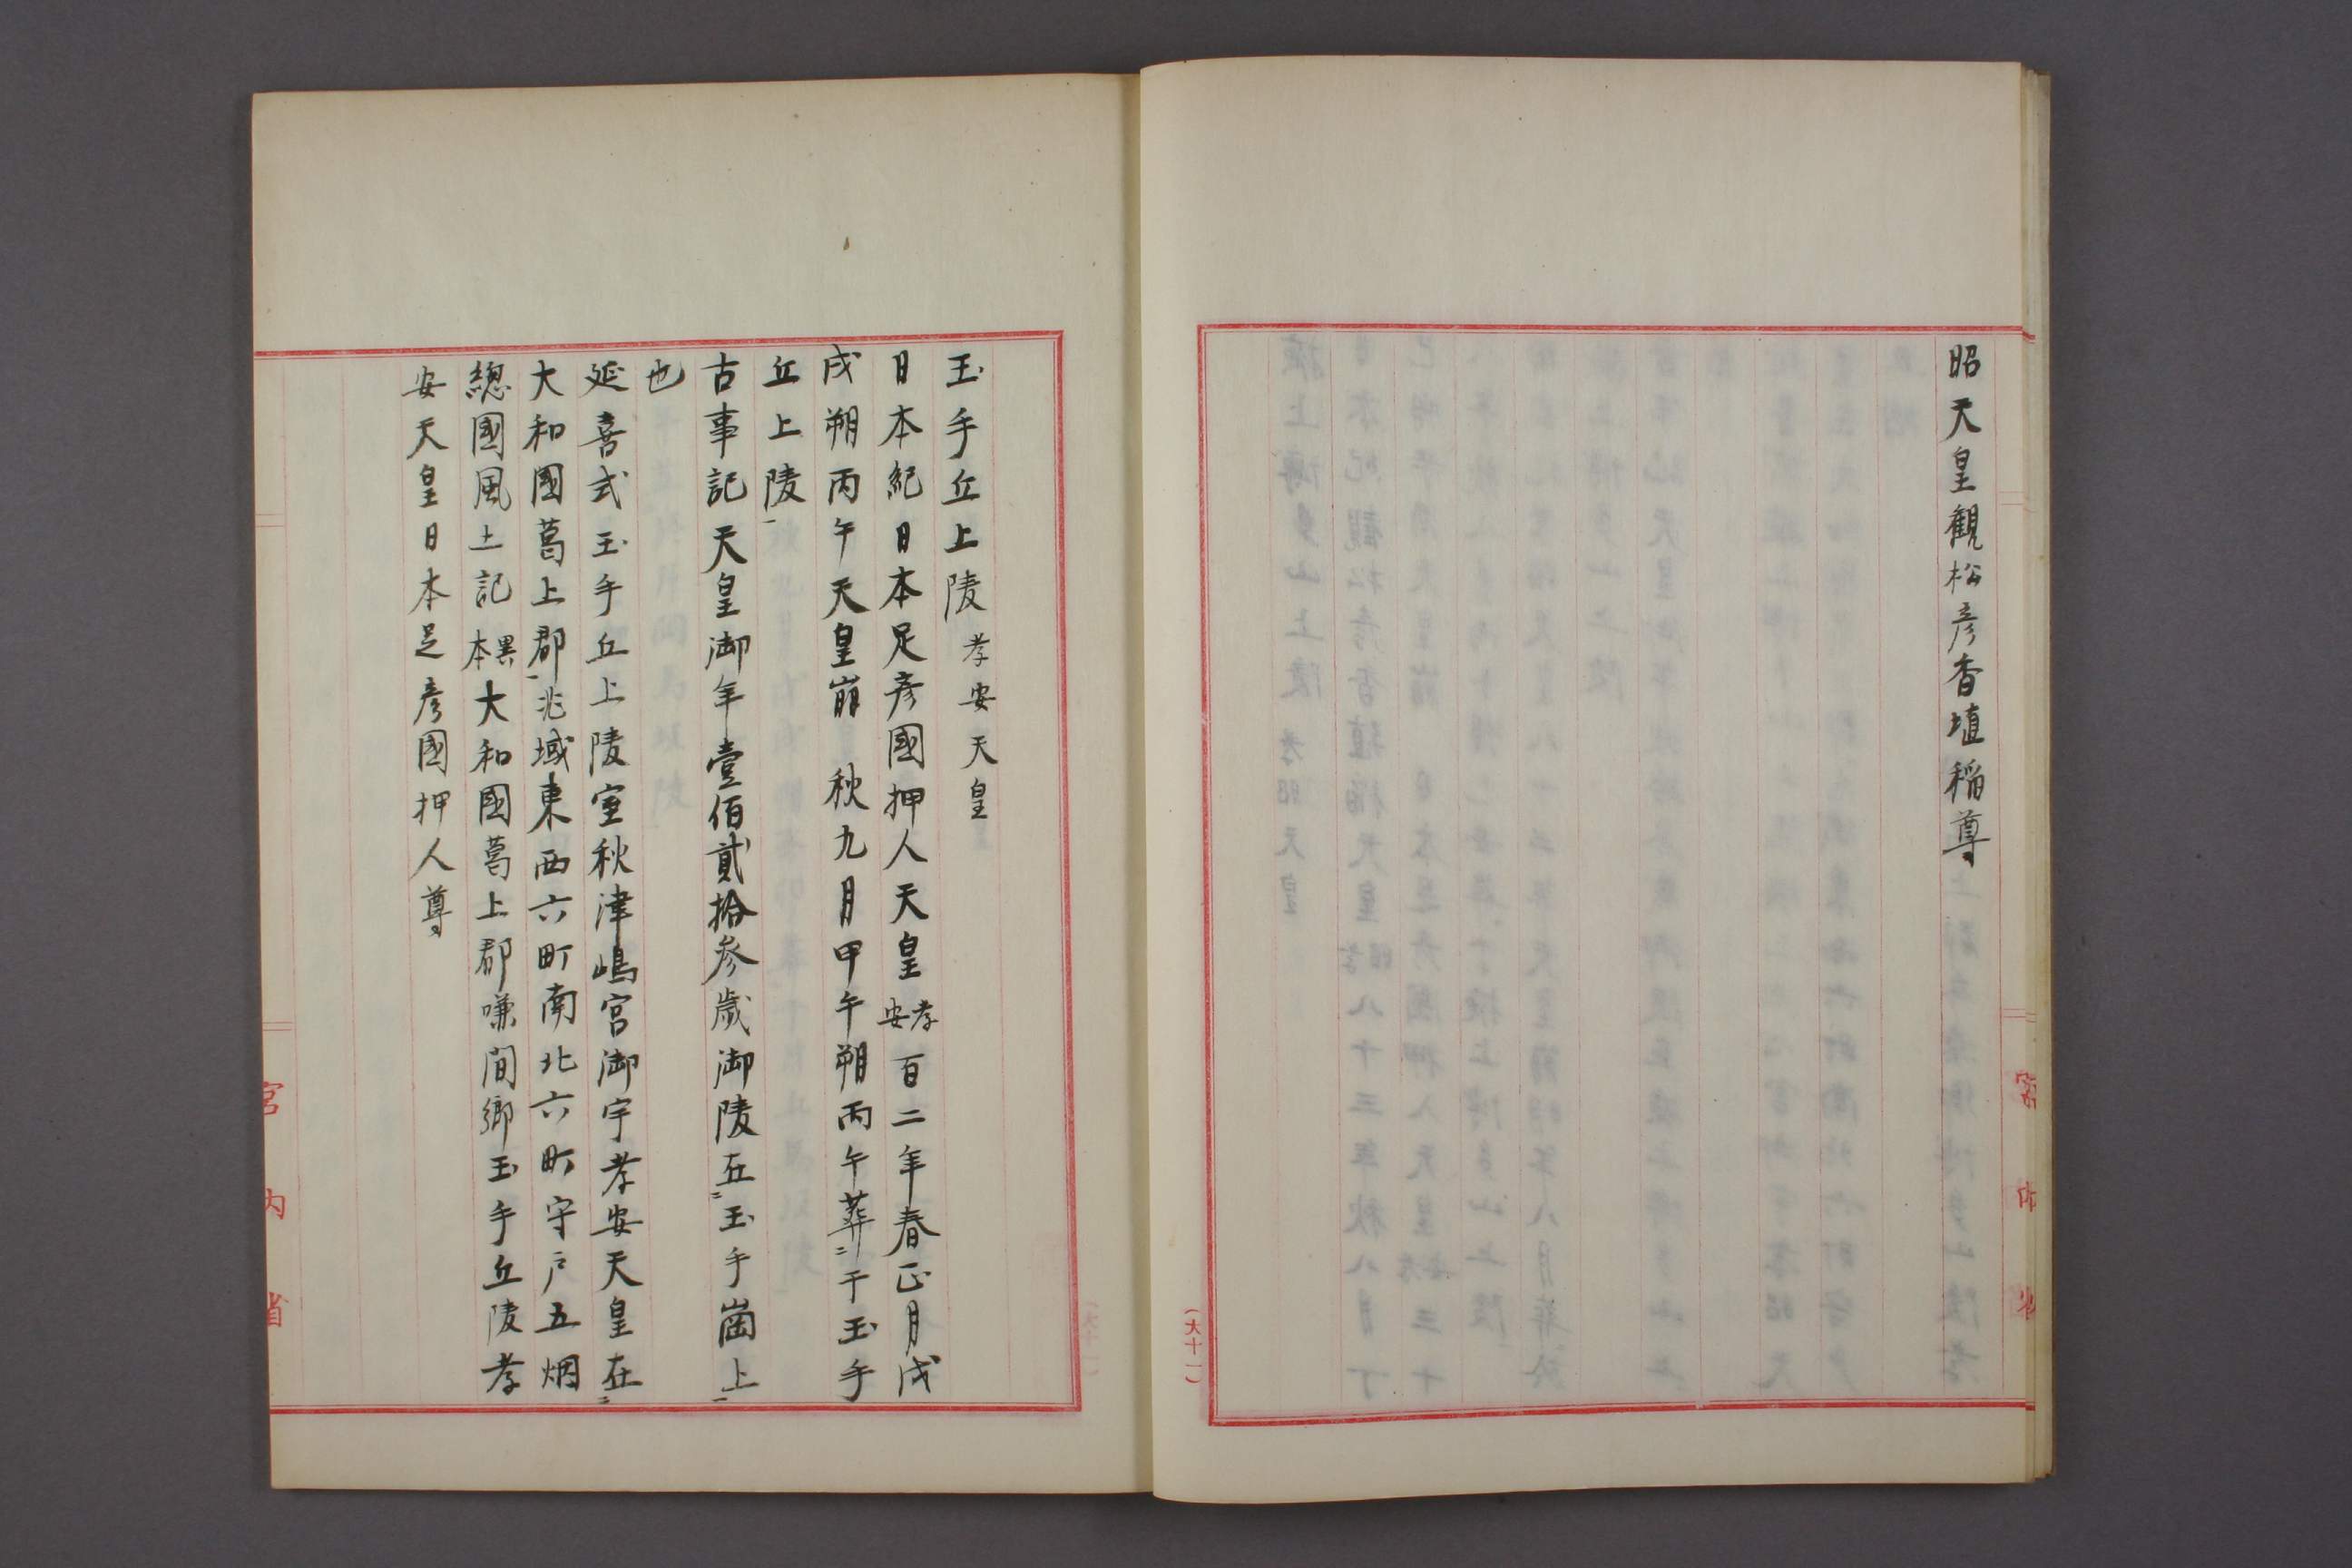 昭天皇觀松彦香埴稲尊
宮内省
(大十一)
玉手丘上陵 孝安天皇
日本紀日本足彦國押人天皇 孝安 百二年春正月戊
戌朔丙午天皇崩 秋九月甲午朔丙午葬二于玉手
丘上陵一
古事記天皇御年壹佰貳拾参歳御陵在二玉手崗上一
也
延喜式玉手丘上陵室秋津嶋宮御宇孝安天皇在二
大和國葛上郡一兆域東西六町南北六町守戸五烟
總國風土記 異本 大和國葛上郡嗛間郷玉手丘陵孝
安天皇日本足彦國押人尊
宮内省